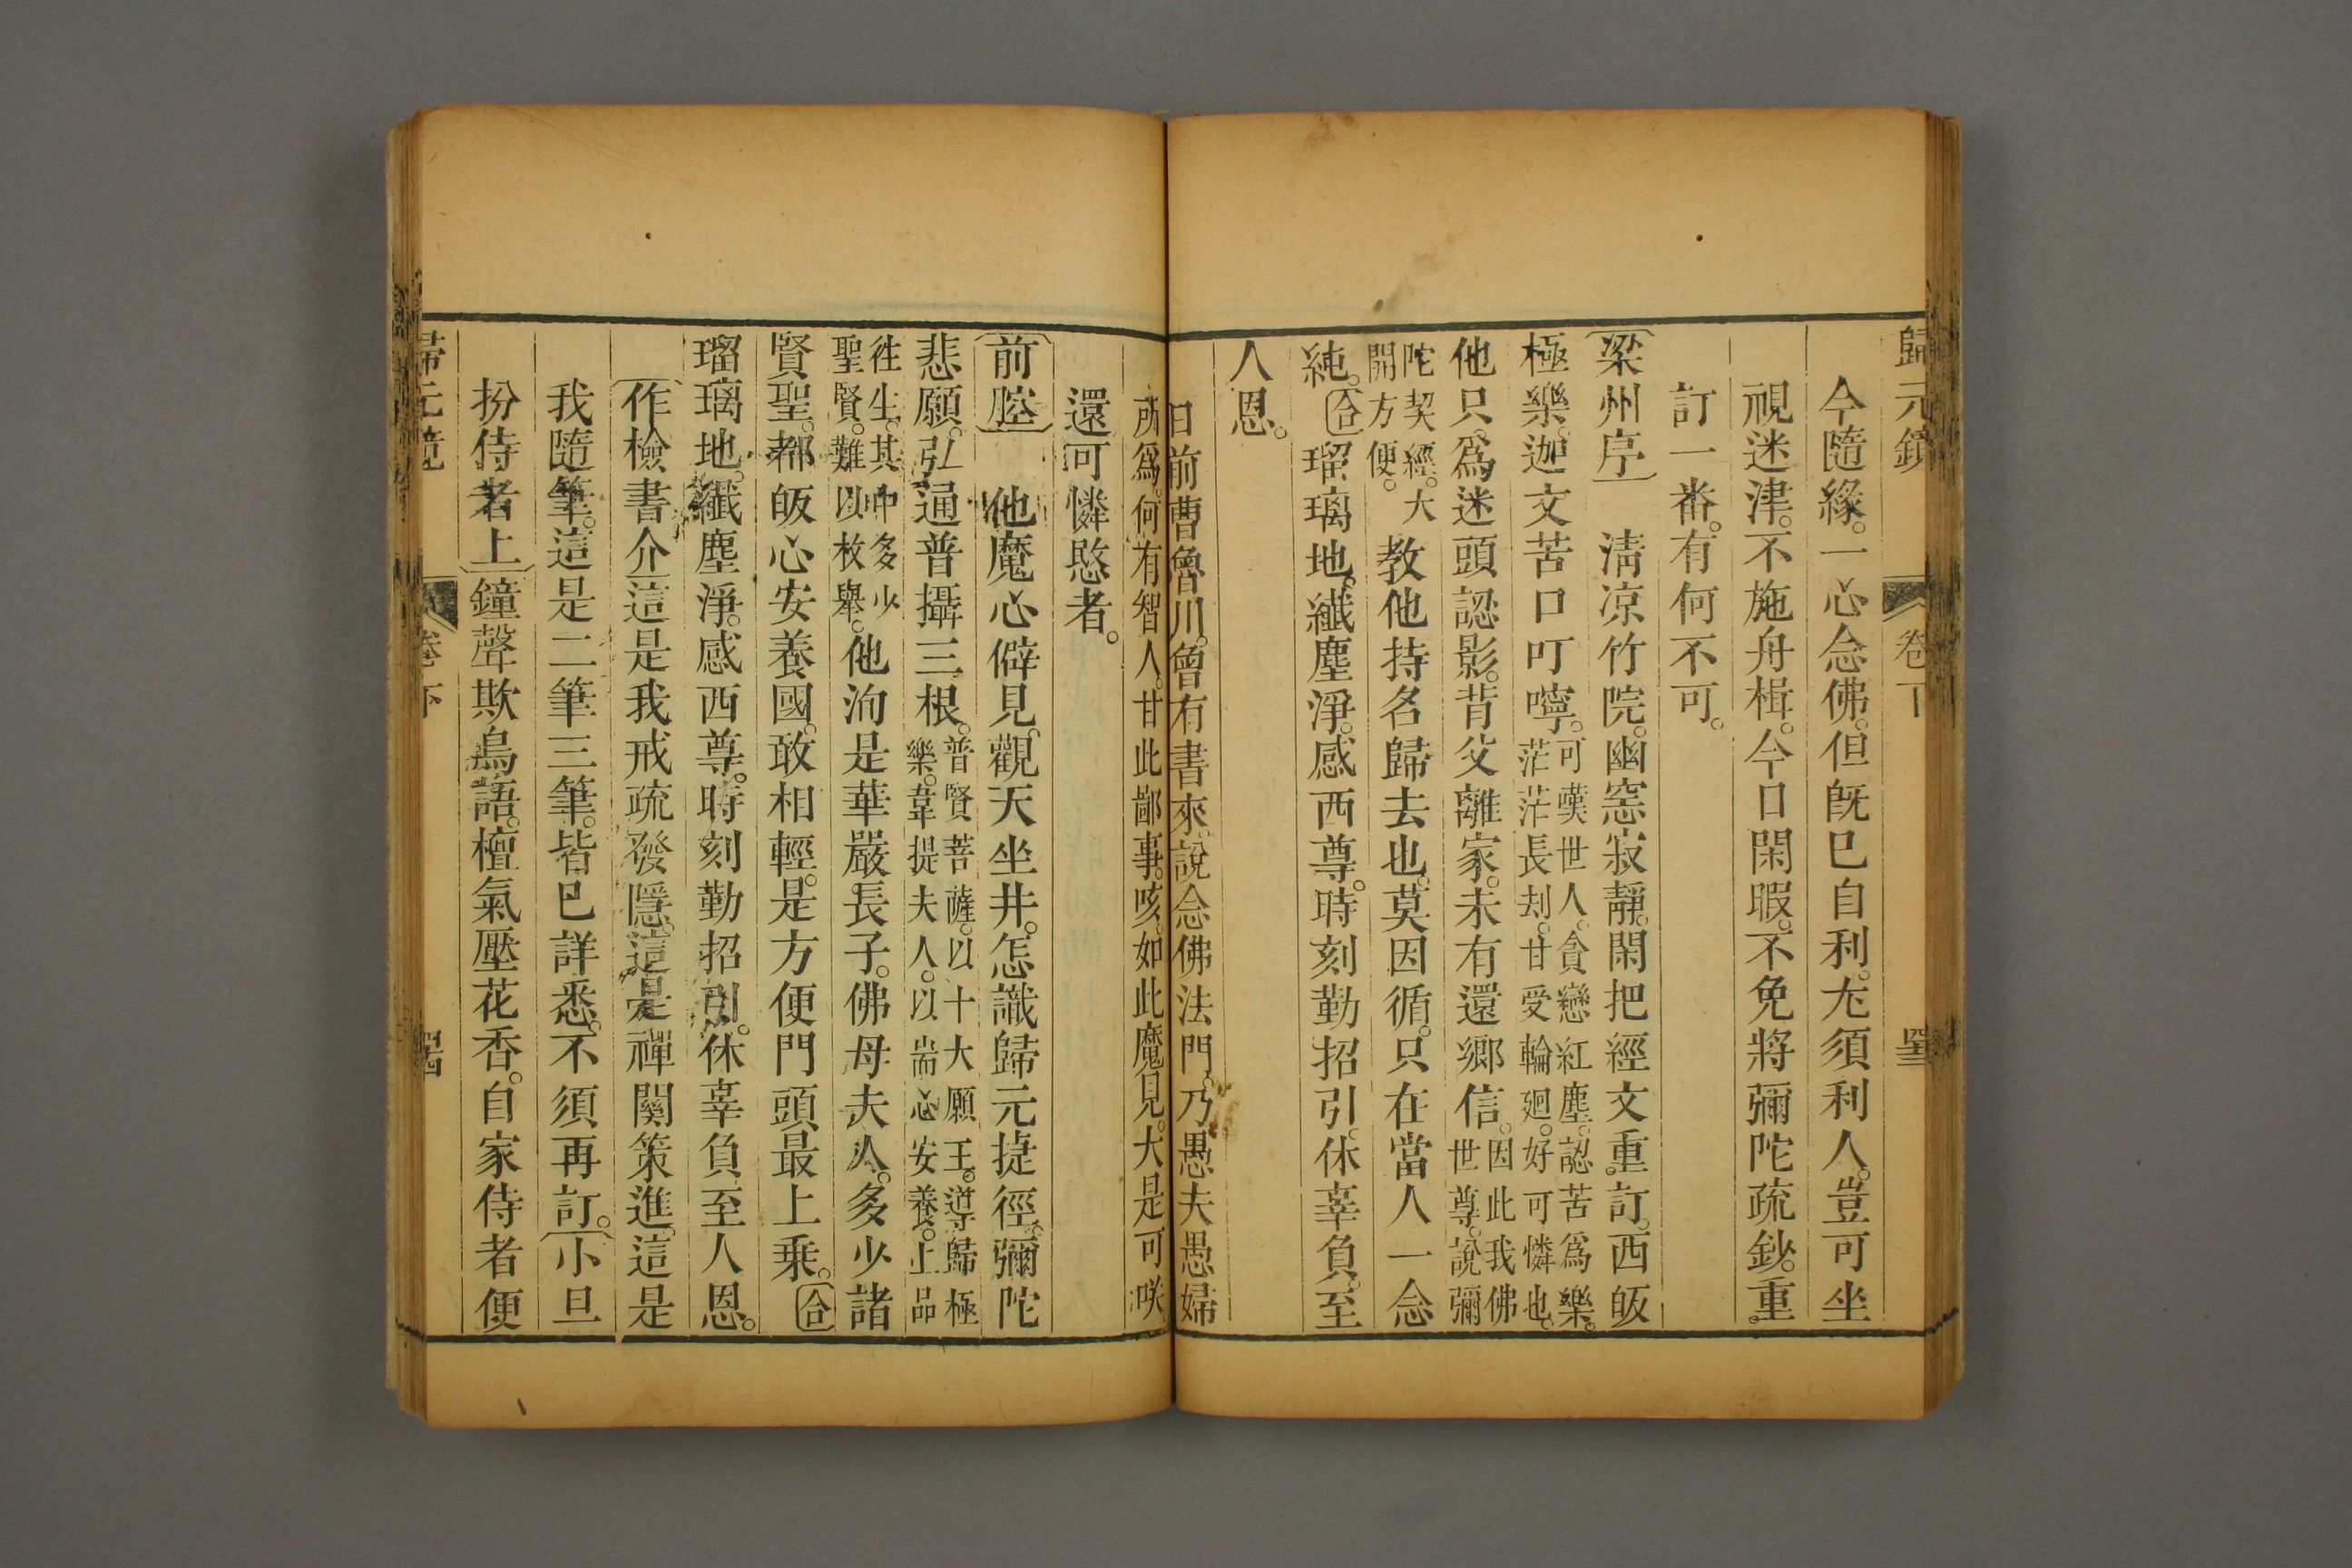 歸元鏡 卷下
今隨緣。一心念佛。但既已自利。尤須利人。豈可坐
視迷津。不施舟楫。今日閑暇。不免將彌陀疏鈔。重
訂一番。有何不可。
梁州序 淸凉竹院。幽窓寂靜。閑把經文重訂。西皈
極樂。迦文苦口叮嚀。可嘆世人。貪戀紅塵。認苦爲樂。茫茫長刦。甘受輪廻。好可憐也。
他只爲迷頭認影。背父離家。未有還鄉信。因此我佛世尊。說彌
陀契經。大開方便。教他持名歸去也。莫因循。只在當人一念
純。合瑠璃地。纖塵淨。感西尊。時刻勤招引。休辜負。至
人恩。
日前曹魯川。曾有書來。說念佛法門。乃愚夫愚婦
所爲。何有智人。甘此鄙事。咳。如此魔見。大是可咲
還可憐愍者。
前腔 他魔心僻見。觀天坐井。怎識歸元捷徑。彌陀
悲願。弘通普攝三根。普賢菩薩。以十大願王。導歸極樂。韋提夫人。以耑心安養。上品
徃生。其中多少聖賢。難以枚舉。他洵是華嚴長子。佛母夫人。多少諸
賢聖。都皈心安養國。敢相輕。是方便門頭最上乗。合
瑠璃地。纖塵淨。感西尊。時刻勤招引。休辜負至人恩。
作檢書介這是我戒疏發隱。這是禪關策進。這是
我隨筆。這是二筆三筆。皆巳詳悉。不須再訂。小旦
扮侍者上鐘聲欺鳥語。檀氣壓花香。自家侍者便
歸元鏡 卷下